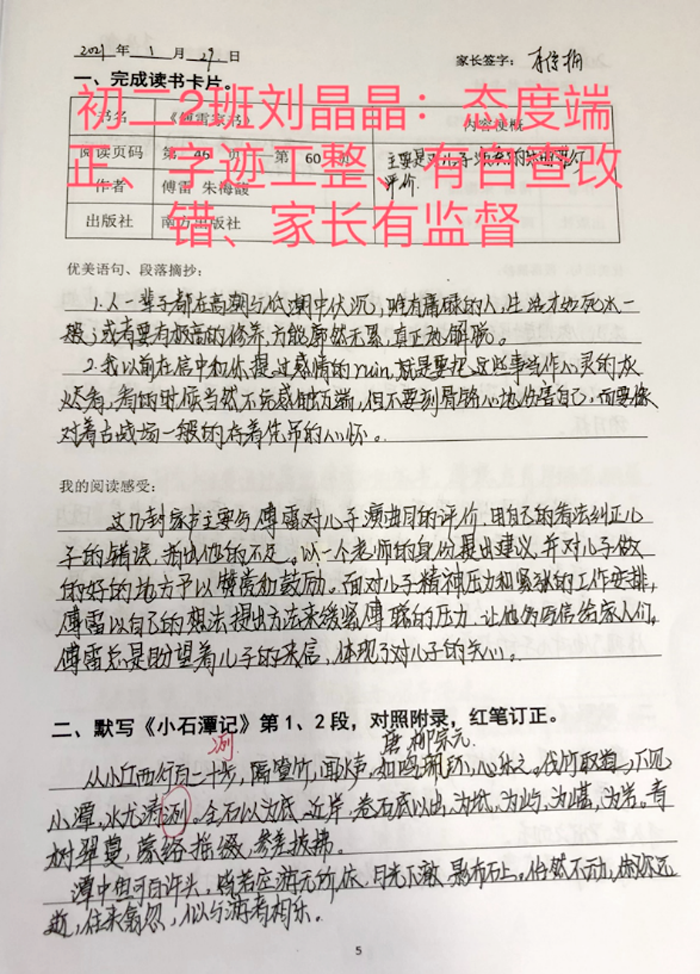 2021年 1 月 29. 日 家长签字:
一、完成读书卡片。
初二2班刘晶晶：态度端
正、字迹工整、有自查改
错、家长有监督
书名 《傅雷家书》 内容梗概
阅读页码 第 46 页 第 60 页 主要是对儿子演奏的
评价.
作者 傅雷 朱梅馥
出版社 南方出版社
优美语句、段落摘抄:
1.人一辈子都在高潮与低潮中伏沉，唯有庸碌的人，生活才如死水一
般；或者要有极高的修养，方能廓然无累，真正的解脱。
2.我以前在信中和你提过感情的ruin，就是要把这些事当作心灵的灰
烬看，看的时候当然不免感触万端，但不要刻骨铭心地伤害自己，而要像
对着古战场一般的存着凭吊的心怀。
我的阅读感受:
这几封家书主要写傅雷对儿子演曲目的评价，用自己的看法纠正儿
子的错误，指出他的不足。以一个老师的身份提出建议，并对儿子做
的好的地方予以赞赏和鼓励。面对儿子精神压力和紧张的工作安排，
傅雷以自己的想法提出方法来缓紧傅聪的压力，让他多写信给家人们。
傅雷总是盼望着儿子的来信，体现了对儿子的关心。
二、默写《小石潭记》第1、2段，对照附录，红笔订正。
冽. 唐 柳宗元.
从小丘西行百二十步，隔篁竹，闻水声，如鸣珮环，心乐之。伐竹取道，下见
小潭，水尤清洌。全石以为底，近岸，卷石底以出，为坻，为屿，为嵁，为岩。青
树翠蔓，蒙络摇缀，参差披拂。
潭中鱼可百许头，皆若空游无所依，日光下澈，影布石上。佁然不动，俶尔远
逝，往来翕忽，似与游者相乐。
5